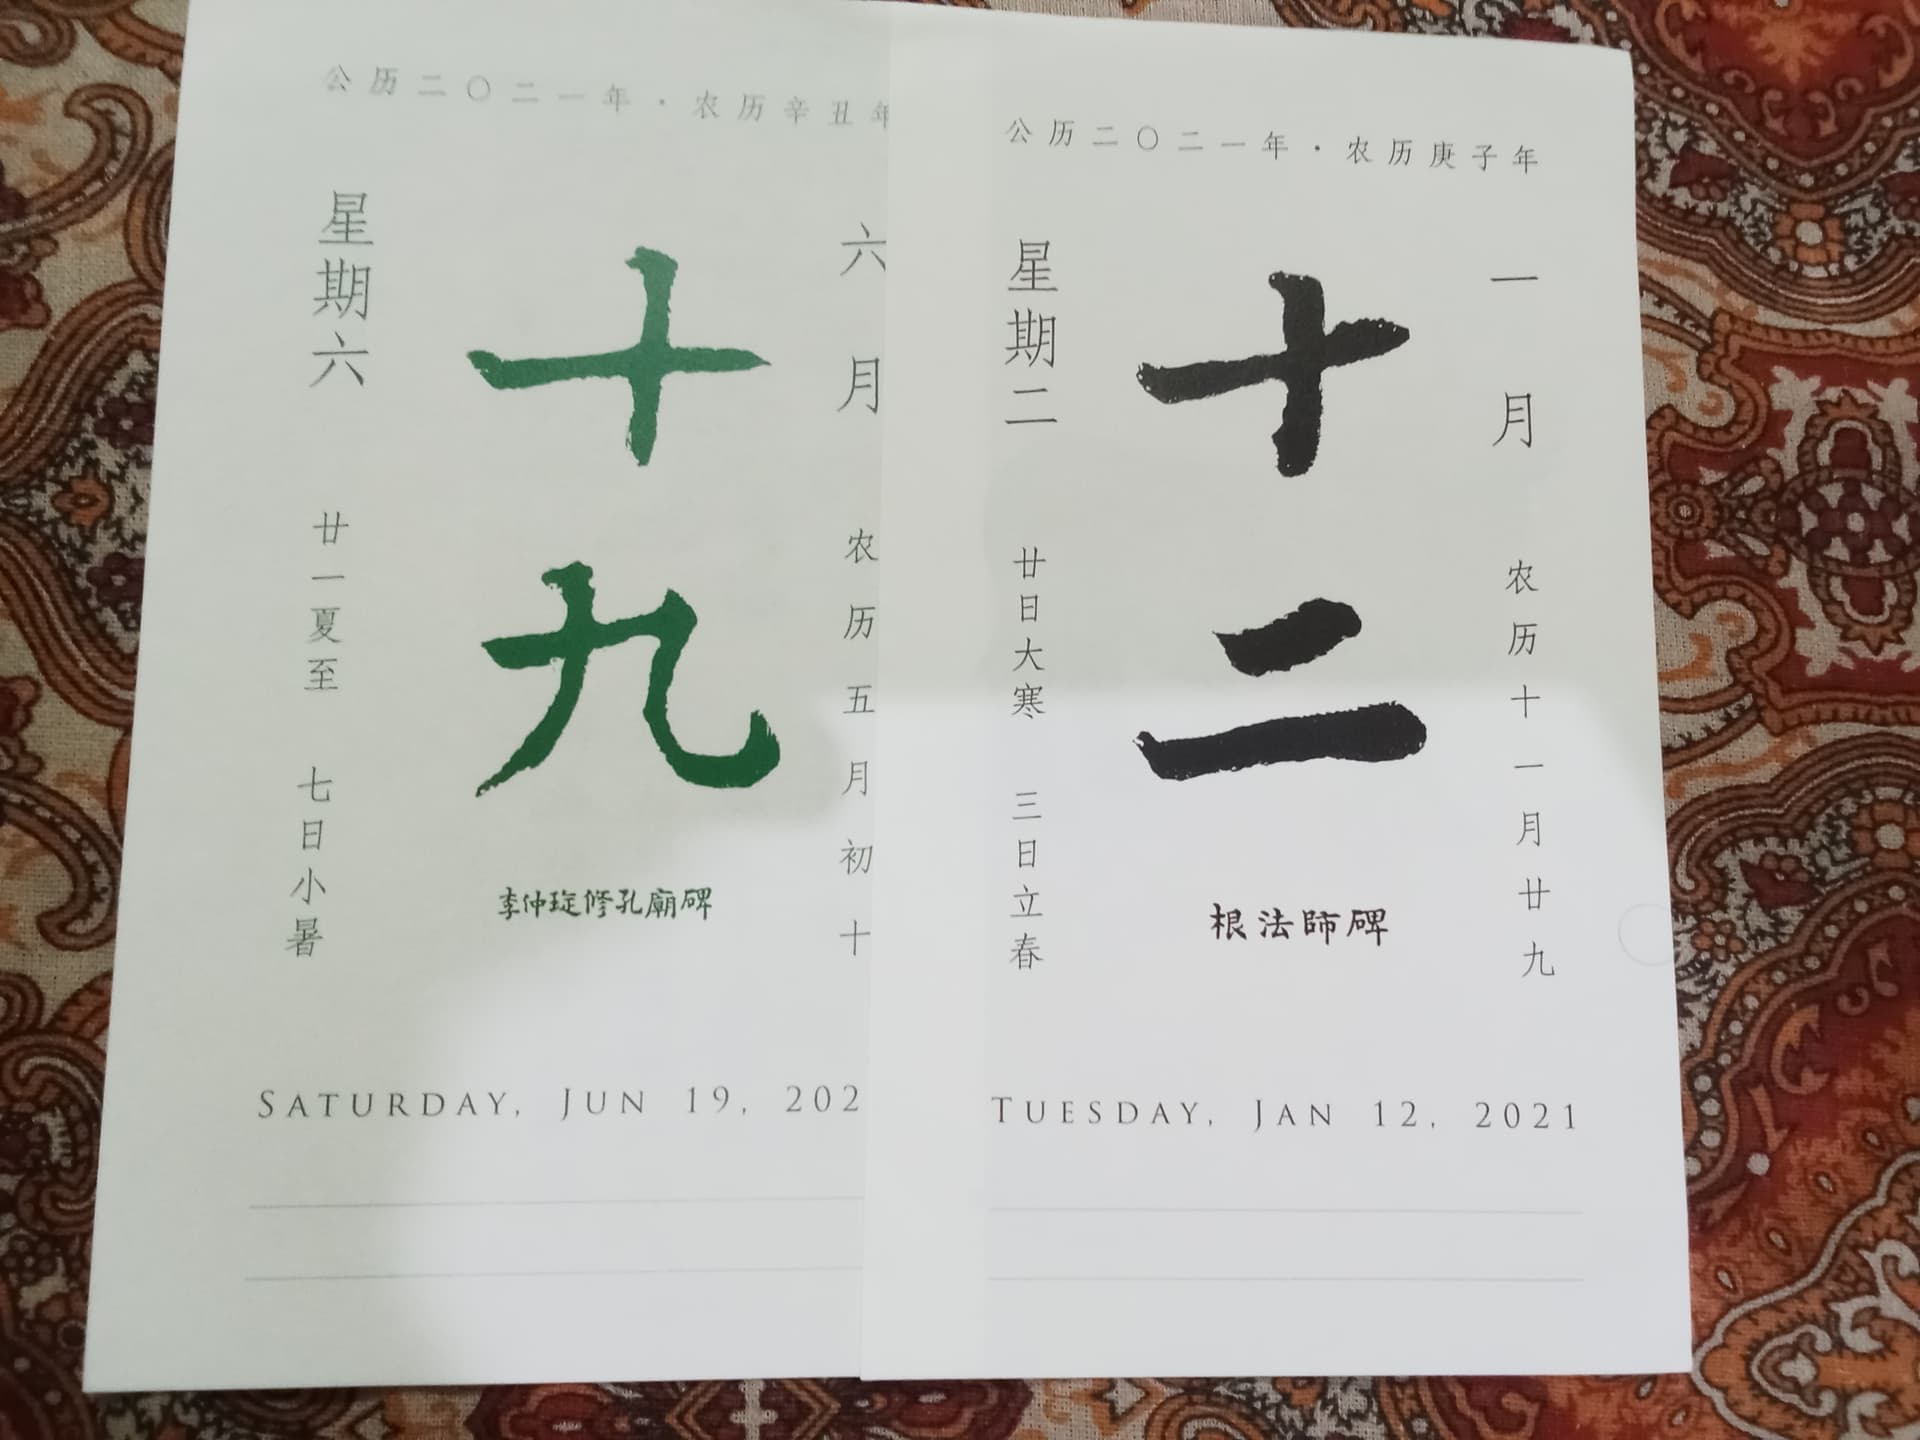 公历二〇二一年·农历辛丑年
星期六
十九
六月
廿一夏至 七日小暑
农历五月初十
李仲琁修孔廟碑
SATURDAY, JUN 19, 202
公历二〇二一年·农历庚子年
星期二
十二
一月
廿日大寒 三日立春
农历十一月廿九
根法師碑
TUESDAY, JAN 12, 2021